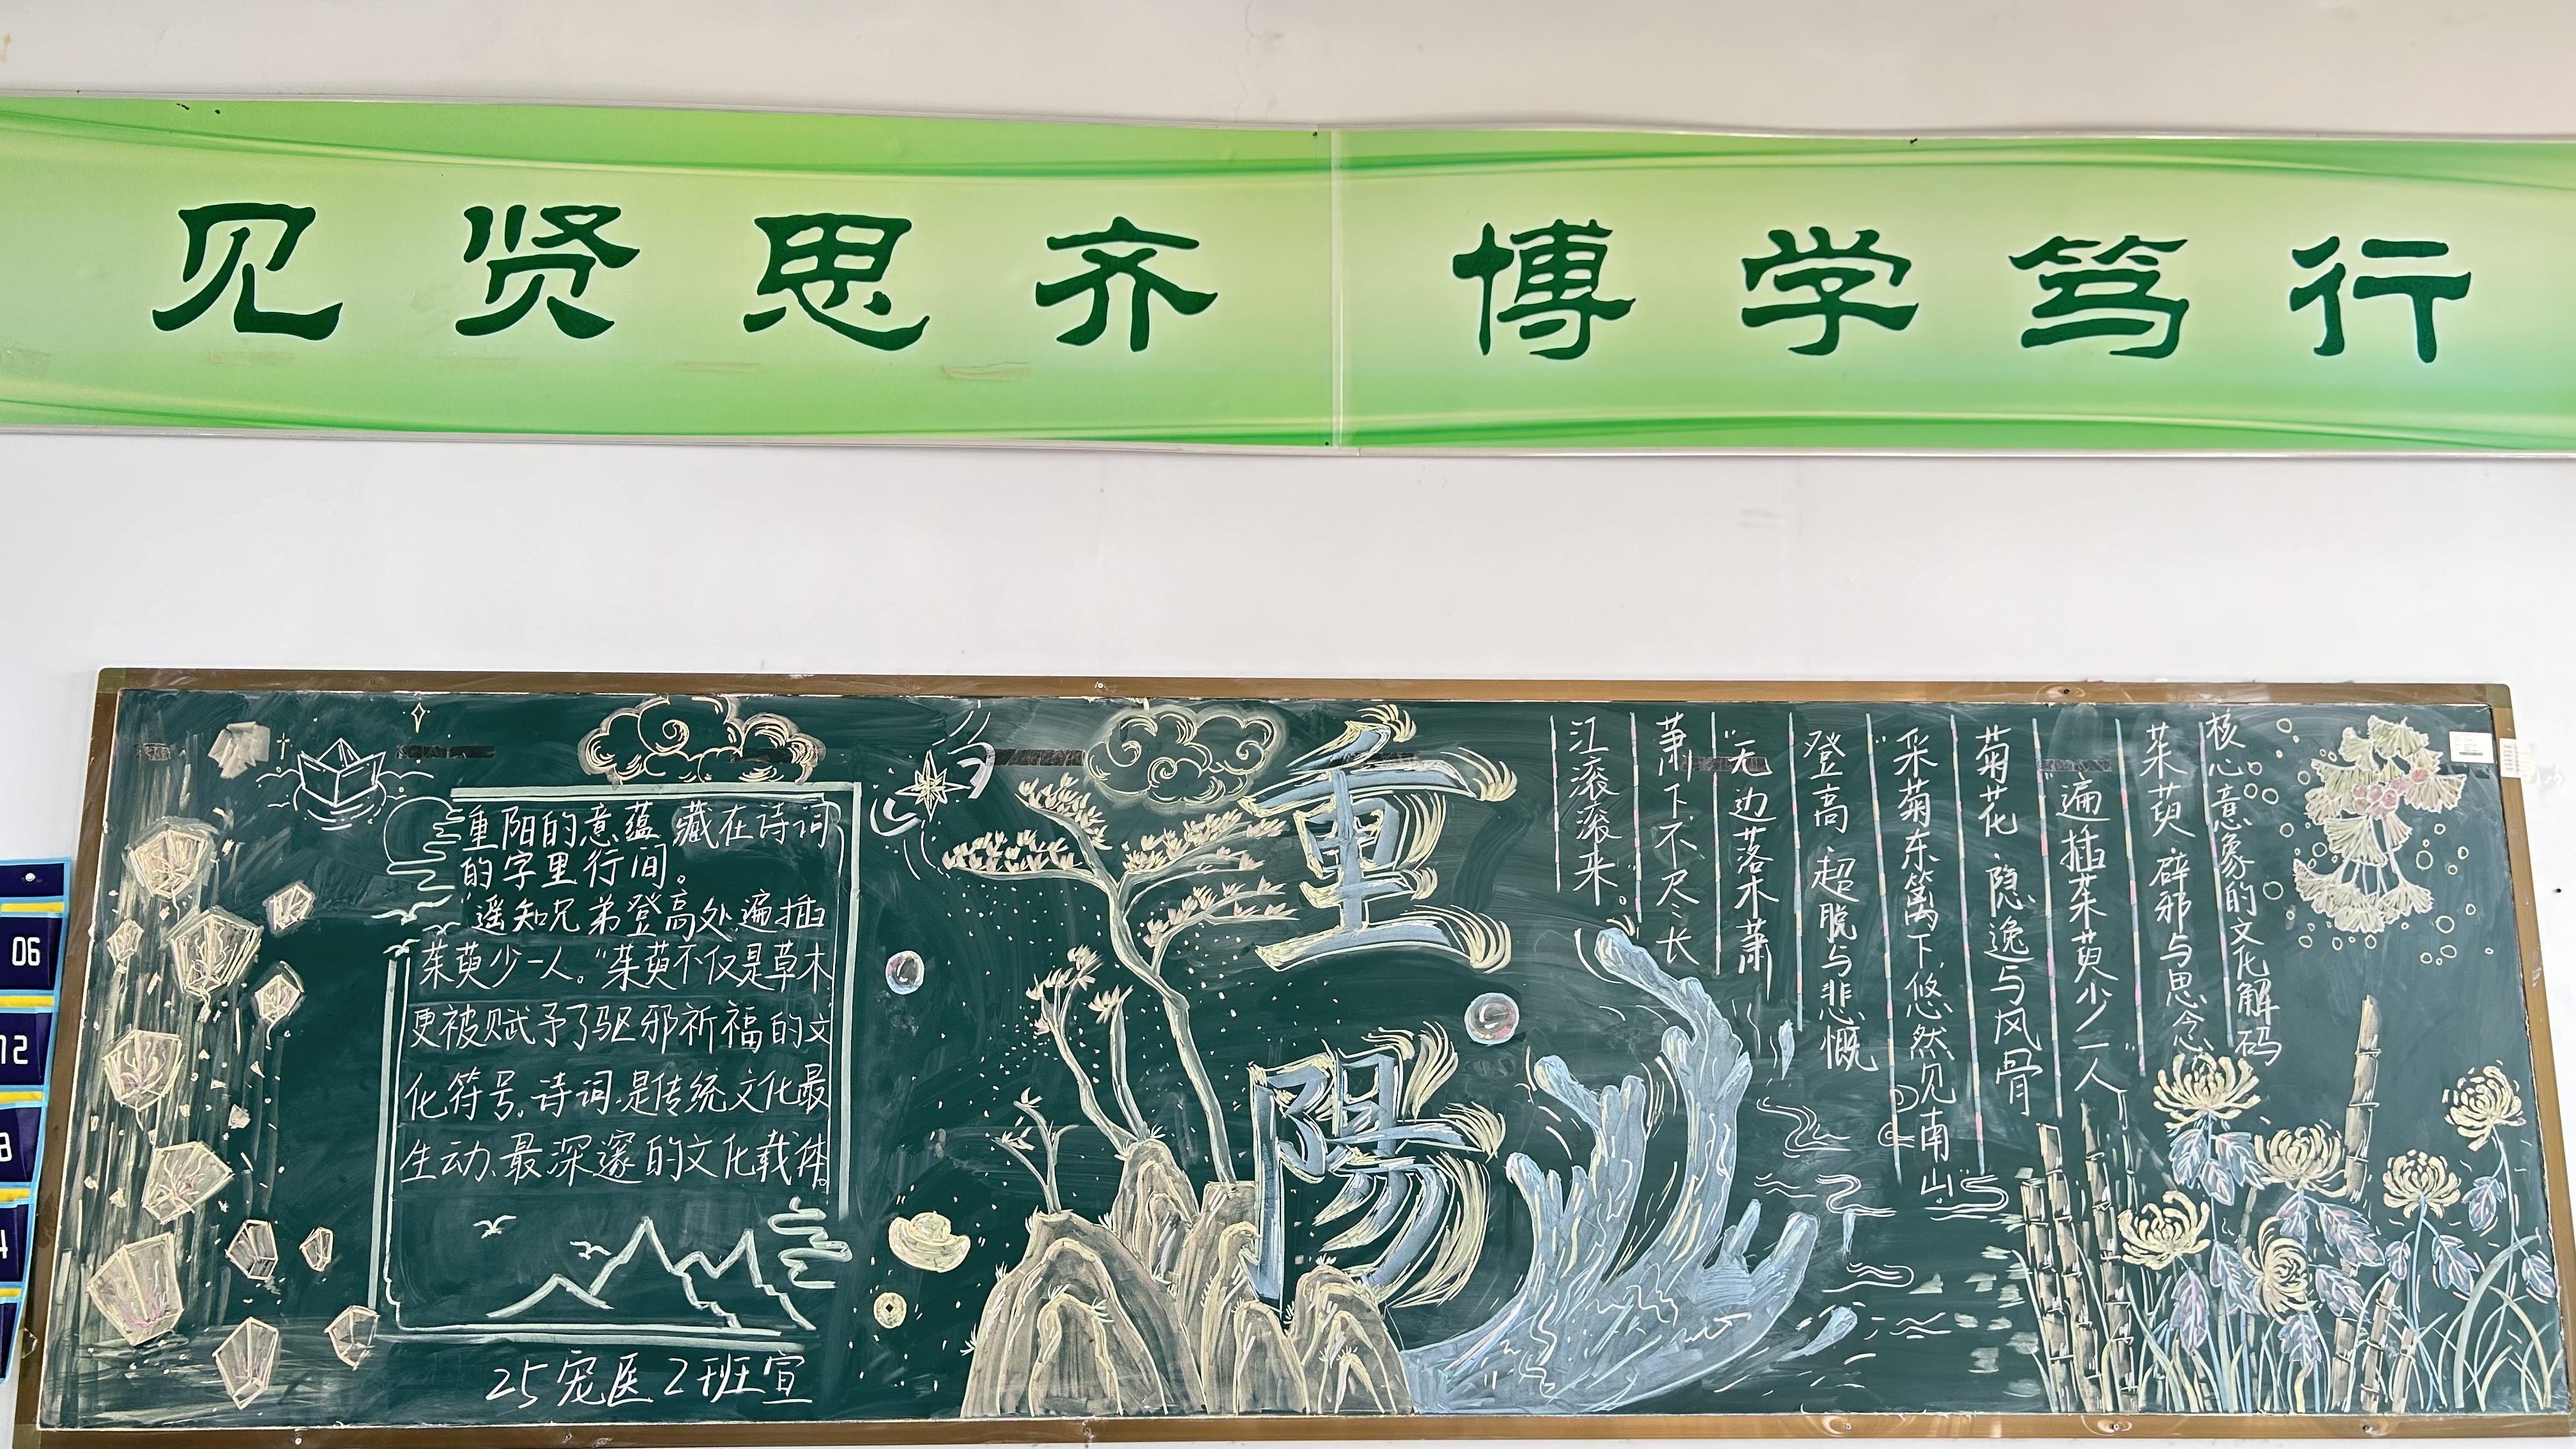 见贤思齐 博学笃行
重阳的意蕴,藏在诗词
的字里行间。
"遥知兄弟登高处,遍插
茱萸少一人。"茱萸不仅是草木
更被赋予了驱邪祈福的文
化符号,诗词,是传统文化最
生动、最深邃的文化载体。
25宠医2班宣
重陽
核心意象的文化解码
茱萸 辟邪与思念
"遍插茱萸少一人"
菊花 隐逸与风骨
"采菊东篱下,悠然见南山"
登高 超脱与悲慨
"无边落木萧
萧下,不尽长
江滚滚来。"
06
12